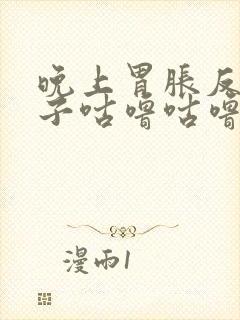 晚上胃胀反
子咕噜咕噜
漫雨1